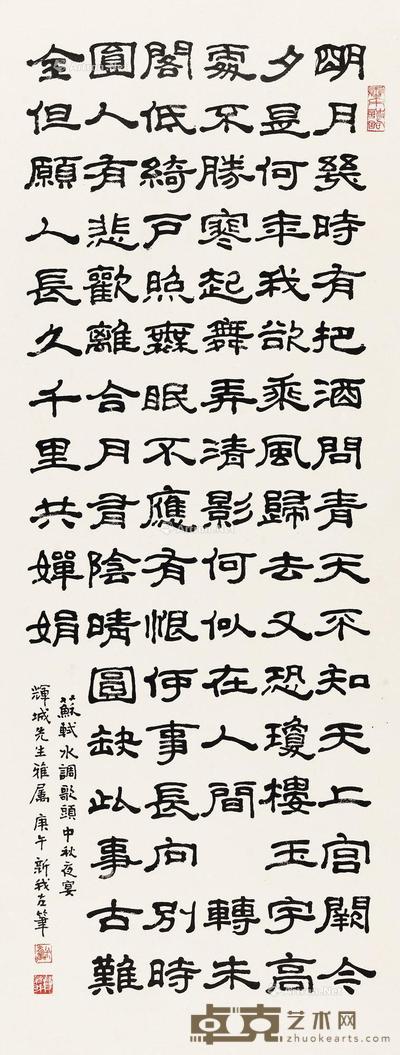 明月幾時有把酒問青天不知天上宫闕今
夕是何年我欲乘風歸去又恐瓊樓玉宇高
處不勝寒起舞弄清影何似在人間 轉朱
閣低綺户照無眠不應有恨何事長向别時
圓人有悲歡離合月有陰晴圓缺此事古難
全但願人長久千里共嬋娟
蘇軾水調歌頭中秋夜宴
輝城先生雅属 庚午 新我左筆
卓克艺术网
www.zhuokearts.com